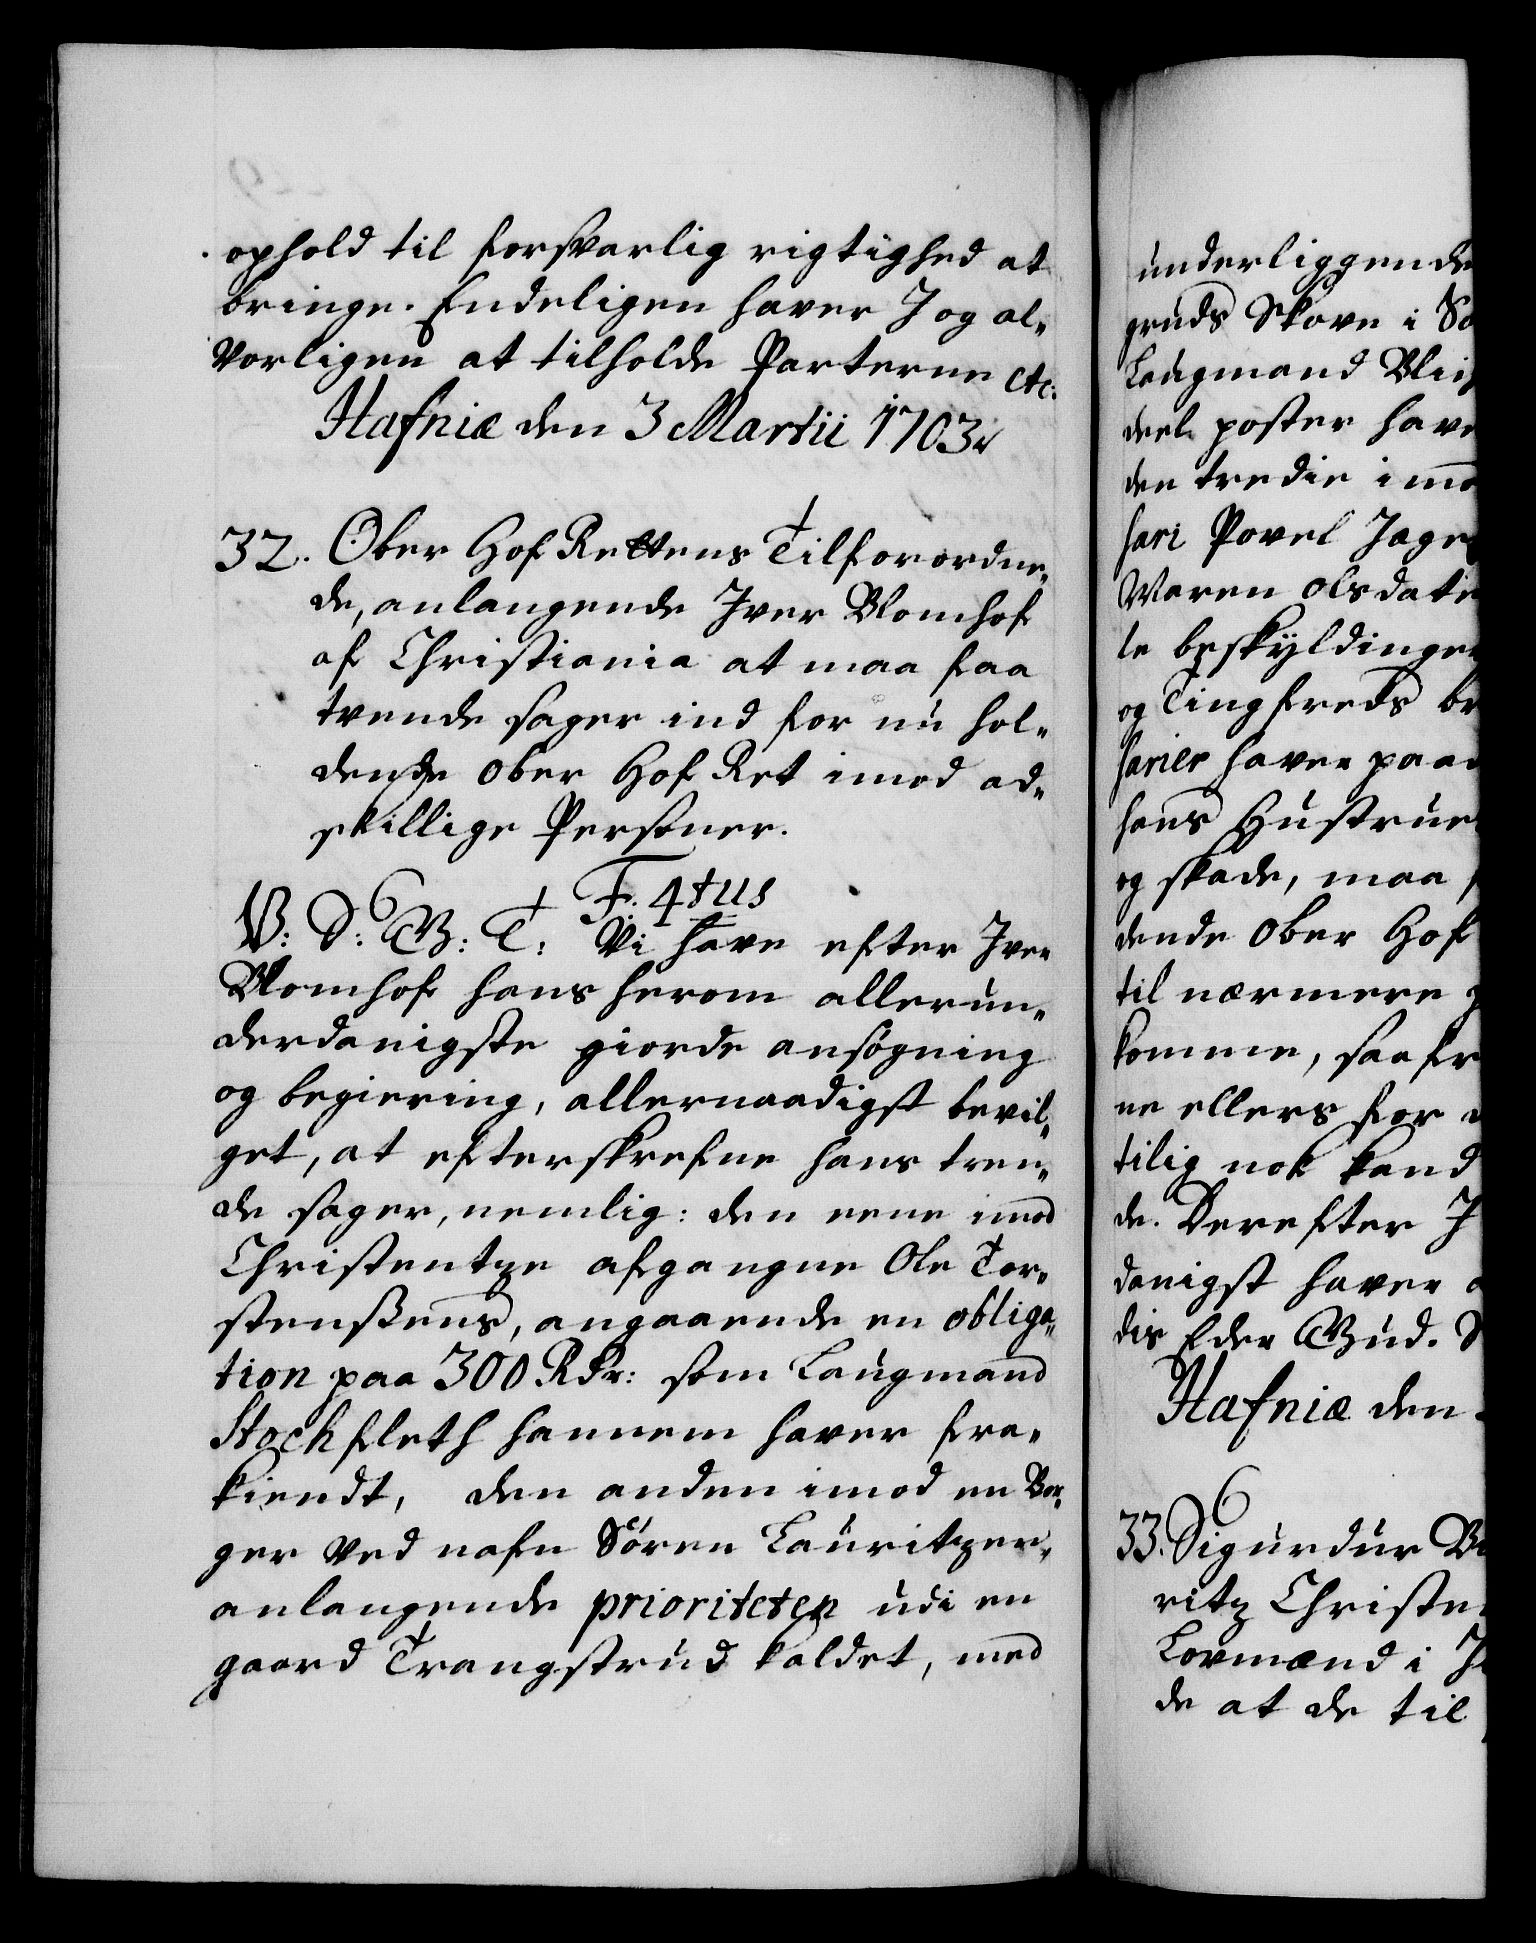 ophold til forsvarlig rigtighed at
bringe. Endeligen haver I og al„
vorligen at tilholde Parterne etc:
Hafniæ den 3 Martii 1703
32. Ober Hof Rettens Tilforordne„
de, anlangende Iver Blomhof
af Christiania at maa faa
trende sager ind for nu hol„
dende Ober Hof Ret imod ad„
skillige Personer.
F. 4tus
V: S: G: T: Vi have efter Iver
Blomhof hans herom allerun„
derdanigste giorde ansøgning
og begiering, allernaadigst bevil„
get, at efterskrefne hans tren„
de sager, nemlig: den eene imod
Christentze afgangne Ole Tor„
stensens, angaaende en obliga„
tion paa 300 Rdr: som Laugmand
Stockfleth hannem haver fra„
kiendt, den anden imod en Bor„
ger ved nafn Sören Lauritzen„
anlangende prioriteten udi en
gaard Trangstrud kaldet, med
underliggende
gruds Skove i So
Laugmand Bli
deel poster have
den tredie imo
sari Povel Jage
Maren Olsdate
le beskyldinge
og Tingfreds br
sarier haver paa
hans Hustrue
og skade, maa
dende Ober Hof
til nærmere
komme, saafre
ne ellers for
tilig nok kand
de. Derefter I
danigst haver
dis Eder Gud. S
Hafniæ den
33. Sigurdur B
ritz Christe
Lovmænd i
de at de til